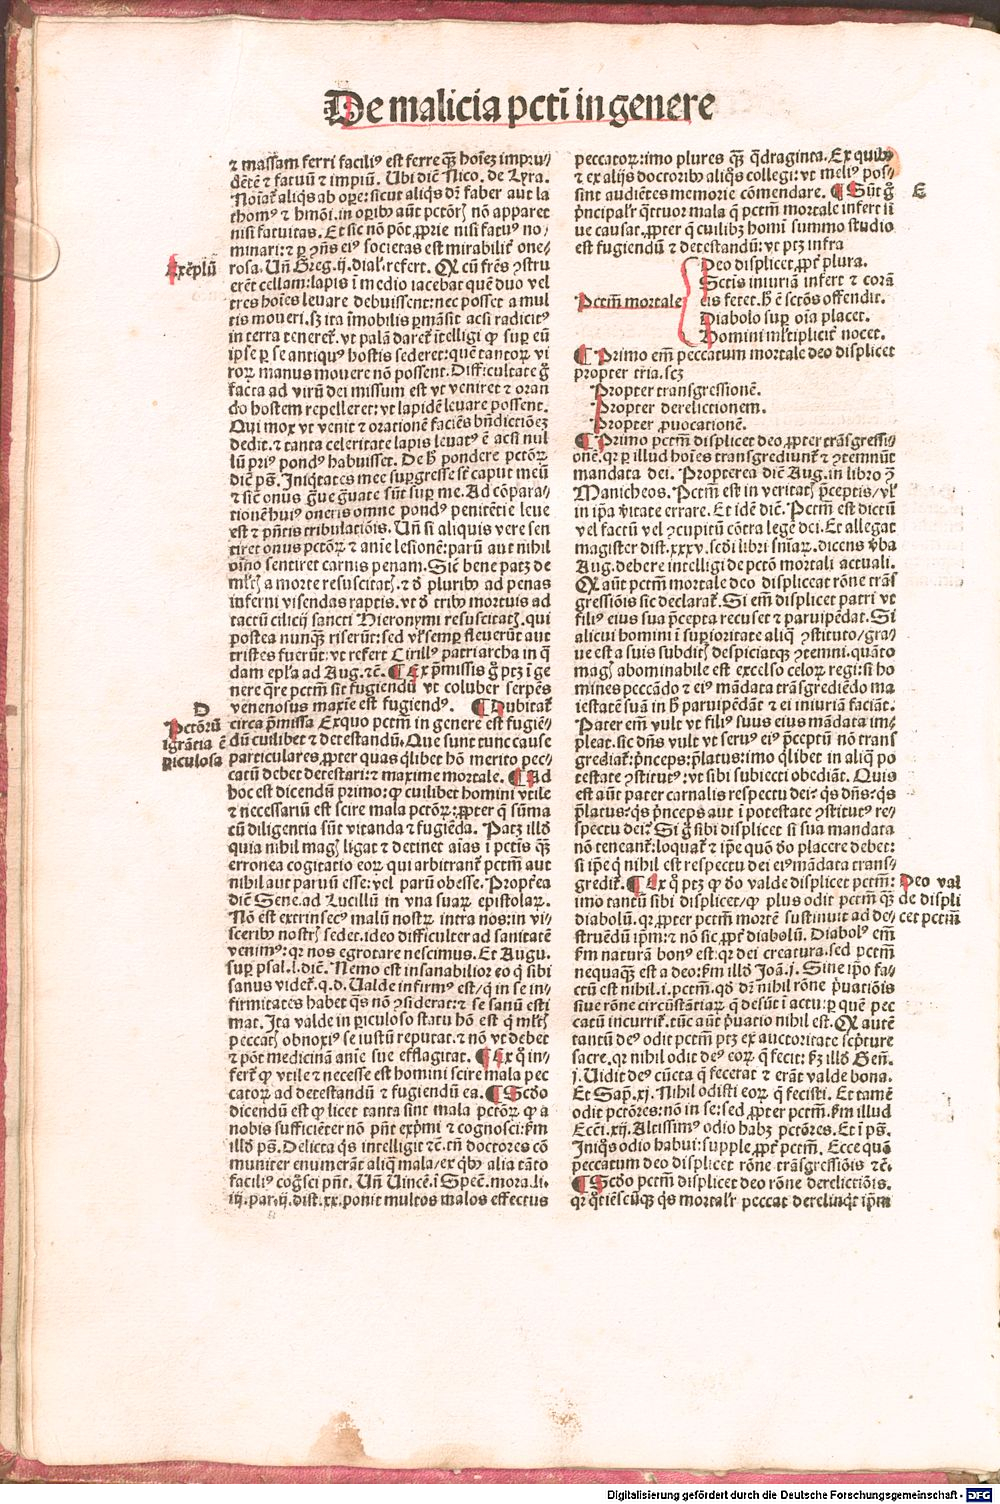 De malicia pctī in genere
⁊ massam ferri faciliꝰ est ferre ꝙ̄ hoīez impru⸗
dētē ⁊ fatuū ⁊ impiū. Ubi diē Nico. de Lyra.
Noīat̄ aliqs ab oꝑe: sicut aliqs dr̄ faber aut la
thomꝰ ⁊ hmōi. in oꝑibꝰ aūt pctōrꝫ nō apparet
nisi fatuitas. Et sic nō pōt ꝓprie nisi fatuꝰ no⸗
minari: ⁊ ꝑ ↄ̄ns eiꝰ societas est mirabilit̄ one⸗
rosa. Uñ Greg. ij. dial. refert. Q cū frēs ↄstru
erēt cellam: lapis ī medio iacebat quē duo vel
tres hoīes leuare debuissent: nec posset a mul
tis moueri. sꝫ ita īmobilis ꝑmāsit acsi radicitꝰ
in terra teneret̄. vt palā daret̄ ītelligi ꝙ suꝑ eū
ipse ꝑ se antiquꝰ hostis sederet: quē tantoꝝ vi
roꝝ manus mouere nō possent. Difficultate ḡ
facta ad virū dei missum est vt veniret ⁊ oran
do hostem repelleret: vt lapidē leuare possent.
Qui mox vt venit ⁊ orationē faciēs bn̄dictiōeꝫ
dedit. ⁊ tanta celeritate lapis leuatꝰ ē acsi nul
lū priꝰ pondꝰ habuisset. De hͦ pondere pctōꝝ
diē pŝ. Iniqtates mee suꝑgresse st̄ caput meū
⁊ sic̄ onus g̈ue g̈uate sūt suꝑ me. Ad cōpara⸗
tionē huiꝰ oneris omne pondꝰ penitētie leue
est ⁊ pn̄tis tribulatiōis. Uñ si aliquis vere sen
tiret onus pctōꝝ ⁊ anīe lesionē: parū aut nihil
oīno sentiret carnis penam. Sic̄ bene patꝫ de
ml̄tꝭ a morte resuscitatꝭ. ⁊ đ pluribꝰ ad penas
inferni visendas raptis. vt đ tribꝰ mortuis ad
tactū cilicij sancti Hieronymi resuscitatꝭ. qui
postea nunqꝫ riserūt: sed vl̄ semꝑ fleuerūt aut
tristes fuerūt: vt refert Cirillꝰ patriarcha in q̄
dam epl̄a ad Aug. ⁊c̄. ¶ Ex p̄missis ḡ ptꝫ ī ge
nere q̄re pctm̄ sit fugiendū vt coluber serpēs
venenosus maxīe est fugiendꝰ. ¶ Dubitat̄
circa p̄missa Exquo pctm̄ in genere est fugiē⸗
dū cuilibet ⁊ detestandū. Que sunt tunc cause
particulares ꝓpter quas qͥlibet hō merito pec⸗
catū debet detestari: ⁊ maxime mortale. ¶ Ad
hoc est dicendū primo: ꝙ cuilibet homini vtile
⁊ necessariū est scire mala pctōꝝ: ꝓpter q̄ sūma
cū diligentia sūt vitanda ⁊ fugiēda. Patꝫ illđ
quia nihil magꝭ ligat ⁊ detinet aīas ī pctis ꝙ̄
erronea cogitatio eoꝝ qui arbitrant̄ pctm̄ aut
nihil aut paruū esse: vel parū obesse. Propt̄ea
diē Sene. ad Lucillū in vna suaꝝ epistolaꝝ.
Nō est extrinsecꝰ malū nostꝝ intra nos: in vi⸗
sceribꝰ nostrꝭ sedet. ideo difficulter ad sanitatē
venimꝰ: qꝛ nos egrotare nescimus. Et Augu.
suꝑ psal. l. diē. Nemo est insanabilior eo qͥ sibi
sanus videt̄. q. d. Ualde infirmꝰ est/ qͥ in se in⸗
firmitates habet qͣs nō ↄsiderat: ⁊ se sanū esti
mat. Ita valde in ꝑiculoso statu hō est qͥ ml̄tꝭ
peccatꝭ obnoxiꝰ se iustū reputat. ⁊ nō vt debet
⁊ pōt medicinā anīe sue efflagitat. ¶ Ex qͦ in⸗
fert̄ ꝙ vtile ⁊ necesse est homini scire mala pec
catoꝝ ad detestandū ⁊ fugiendū ea. ¶ Scđo
dicendū est ꝙ licet tanta sint mala pctōꝝ ꝙ a
nobis sufficiēter nō pn̄t exp̄mi ⁊ cognosci: ẜm
illđ pŝ. Delicta qͥs intelligit ⁊c̄. tn̄ doctores cō
muniter enumerāt aliqͣ mala/ ex qͥbꝰ alia tāto
faciliꝰ cogͦsci pn̄t. Uñ Uincē. ī Spec̄. mora. li.
iij. par. ij. dist. xx. ponit multos malos effectus
Exēplū
D
Pctōrū
igrātia ē
ꝑiculosa
peccatoꝝ: imo plures ꝙ̄ q̄draginta. Ex quibꝰ
⁊ ex alijs doctoribꝰ aliqͣs collegi: vt meliꝰ pos⸗
sint audiētes memorie cōmendare. ¶ Sūt ḡ
p̄ncipalr̄ qͣttuor mala q̄ pctm̄ mortale infert si
ue causat. ꝓpter q̄ cuilibꝫ homī summo studio
est fugiendū ⁊ detestandū: vt ptꝫ infra
Pctm̄ mortale
Deo displicet ꝓpt̄ plura.
Sctīs iniuriā infert ⁊ corā
eis fetet. hͦ ē sctōs offendit.
Diabolo suꝑ oīa placet.
Homini ml̄tiplicit̄ nocet.
¶ Primo em̄ peccatum mortale deo displicet
propter tria. scꝫ
Propter transgressionē.
Propter derelictionem.
Propter ꝓuocationē.
¶ Primo pctm̄ displicet deo ꝓpter trāsgressi⸗
onē. qꝛ ꝑ illud hoīes transgrediunt̄ ⁊ ↄtemnūt
mandata dei. Propterea diē Aug. in libro ↄ̄
Manicheos. Pctm̄ est in veritatꝭ p̄ceptis/ vl̄
in ip̄a v̄itate errare. Et idē diē. Pctm̄ est dictū
vel factū vel ↄcupitū cōtra legē dei. Et allegat
magister dist. xxxv. scđi libri sn̄iaꝝ. dicens v̄ba
Aug. debere intelligi de pctō mortali actuali.
Q aūt pctm̄ mortale deo displiceat rōne trās
gressiōis sic declarat̄. Si em̄ displicet patri vt
filiꝰ eius sua p̄cepta recuset ⁊ paruipēdat. Si
alicui homini ī suꝑioritate aliqͣ ↄstituto/ gra⸗
ue est a suis subditꝭ despici atqꝫ ↄtemni. quāto
magꝭ abominabile est excelso celoꝝ regi: si ho
mines peccādo ⁊ eiꝰ mādata trāsgrediēdo ma
iestatē suā in hͦ paruipēdāt ⁊ ei iniuriā faciāt.
Pater em̄ vult vt filiꝰ suus eius mādata im⸗
pleat. sic dn̄s vult vt seruꝰ eiꝰ p̄ceptū nō trans
grediat̄: p̄nceps: p̄latus: imo qͥlibet in aliqͣ po
testate ↄstitutꝰ: vt sibi subiecti obediāt. Quis
est aūt pater carnalis respectu dei: qͥs dn̄s: qͥs
p̄latus: qͥs p̄nceps aut ī potestate ↄstitutꝰ re⸗
spectu dei? Si ḡ sibi displicet si sua mandata
nō teneant̄: loquat̄ ⁊ ip̄e quō đo placere debet:
si ip̄e qͥ nihil est respectu dei eiꝰ mādata trans⸗
gredit̄. ¶ Ex qͦ ptꝫ ꝙ đo valde displicet pctm̄:
imo tantū sibi displicet/ ꝙ plus odit pctm̄ ꝙ̄
diabolū. qꝛ ꝓpter pctm̄ mortē sustinuit ad de⸗
struēdū ip̄m: ⁊ nō sic ꝓpt̄ diabolū. Diabolꝰ em̄
ẜm naturā bonꝰ est: qꝛ dei creatura. sed pctm̄
nequaqꝫ est a deo: ẜm illđ Joā. j. Sine ip̄o fa⸗
ctū est nihil. i. pctm̄. qđ dr̄ nihil rōne p̄uatiōis
siue rōne circūstātiaꝝ q̄ desūt ī actu: ꝑ quē pec
catū incurrit̄. tūc aūt p̄uatio nihil est. Q autē
tantū deꝰ odit pctm̄ ptꝫ ex auctoritate scp̄ture
sacre. qꝛ nihil odit deꝰ eoꝝ q̄ fecit: ẜꝫ illđ Geñ.
j. Uidit deꝰ cūcta q̄ fecerat ⁊ erāt valde bona.
Et Sap̄. xj. Nihil odisti eoꝝ q̄ fecisti. Et tamē
odit pctōres: nō in se: sed ꝓpter pctm̄. ẜm illud
Ecc̄i. xij. Altissimꝰ odio habꝫ pctōres. Et ī pŝ.
Iniqͦs odio habui: supple ꝓpt̄ pctm̄. Ecce quō
peccatum deo displicet rōne trāsgressiōis ⁊c̄.
¶ Scđo pctm̄ displicet deo rōne derelictiōis.
qꝛ qͦtiēscūqꝫ qͥs mortalr̄ peccat derelinqͥt ip̄m
E
Deo val
de displi
cet pctm̄
Digitalisierung gefördert durch die Deutsche Forschungsgemeinschaft - DFG